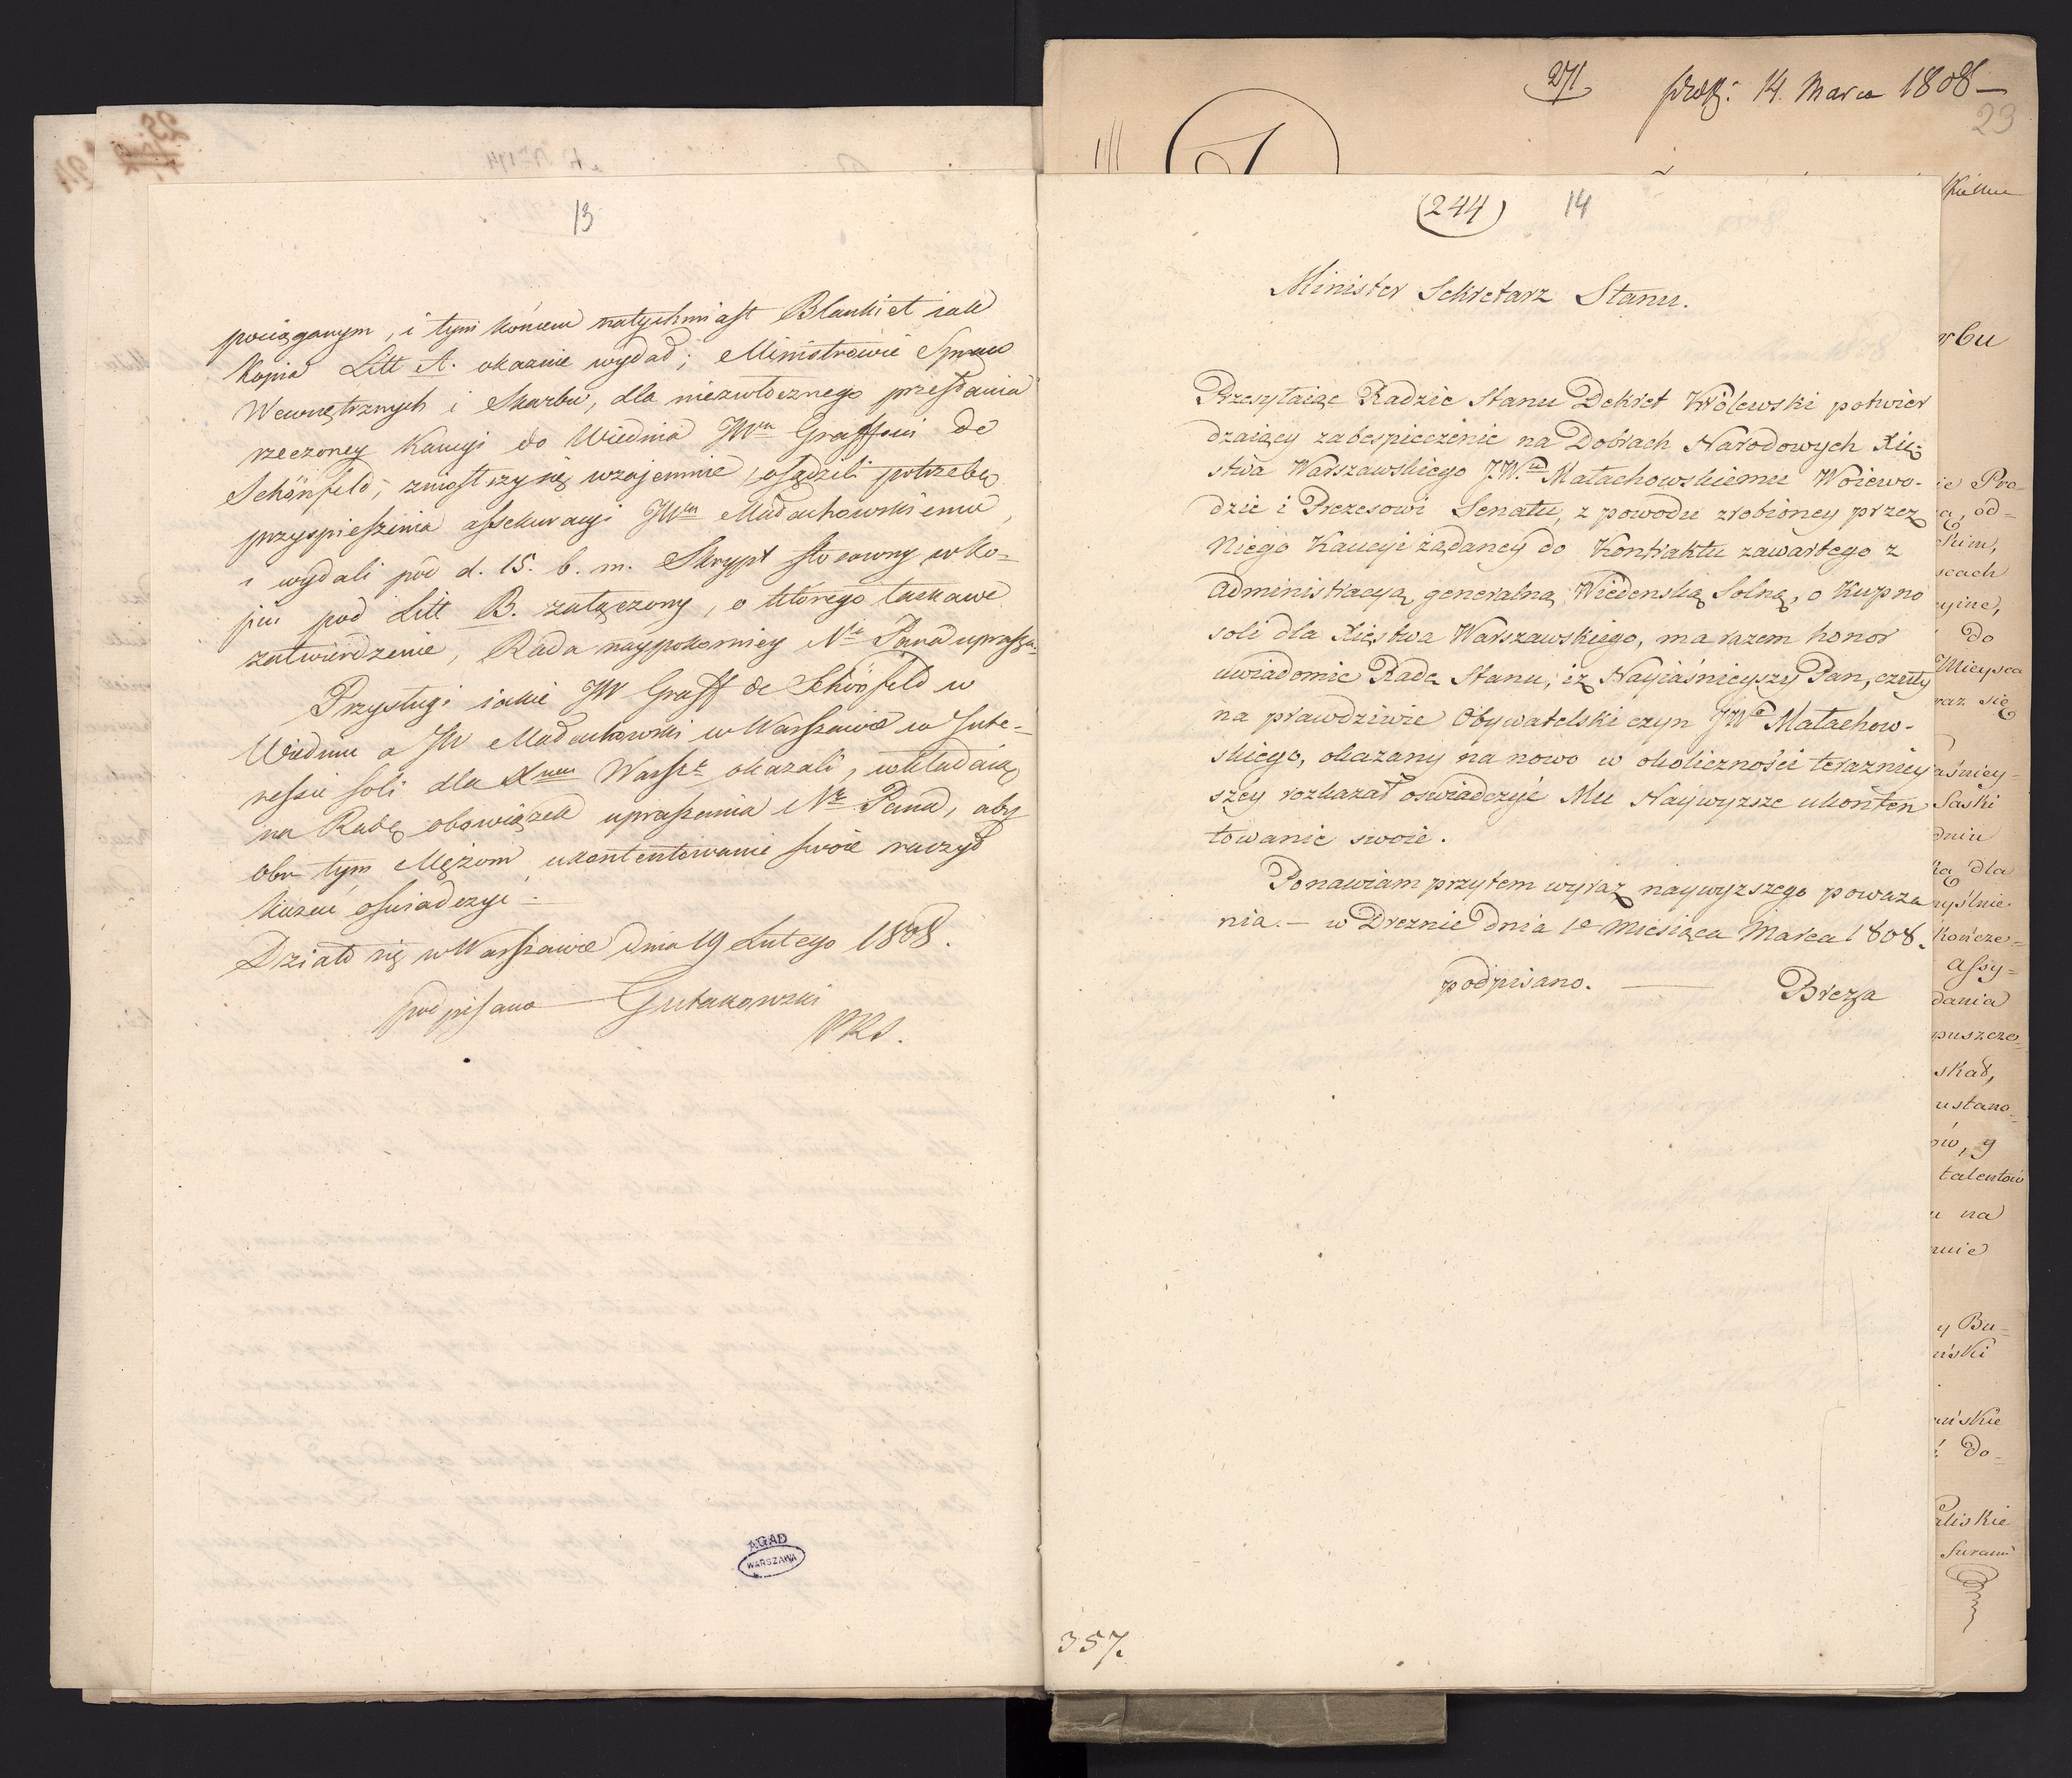 13
pociąganym, i tym końcem natychmiast Blankiet iak
Kopia Litt A. okazuie wydał; Ministrowie Spraw
Wewnętrznych i Skarbu, dla niezwłocznego przesłania
rzeczoney Kaucyi do Wiednia JWmu Graffowi de
Schönfeld, zniosłszy się wzajemnie, osądzili potrzebę
przyspieszenia assekuracyi JWmu Małachowskiemu,
i wydali pod d. 15. b. m. Skrypt stosowny w Ko-
pii pod Litt B. załączony, o którego łaskawe
zatwierdzenie, Rada naypokorniey Ngo Pana uprasza.
Przysługi iakie JW Graff de Schönfeld w
Wiedniu a JW Małachowski w Warszawie w Inte-
ressie soli dla Xwa Warszgo okazali, wkładaią
na Radę obowiązek upraszania Ngo Pana, aby
obu tym Mężom ukontentowanie swoie raczył
kazać oświadczyć.
Działo się w Warszawie dnia 19 Lutego 1808.
podpisano — Gutakowski
PRS.
AGAD
WARSZAWA
271 14. Marca 1808 —
23
(244) 14
Minister Sekretarz Stanu.
Przesyłaiąc Radzie Stanu Dekret Królewski potwier
dzaiący zabespieczenie na Dobrach Narodowych Xię-
stwa Warszawskiego J.W.mu Małachowskiemu Woiewo-
dzie i Prezesowi Senatu, z powodu zrobioney przez
Niego Kaucyi żądaney do Kontraktu zawartego z
Administracyą generalną Wiedenską Solną, o Kupno
soli dla Xięstwa Warszawskiego, ma razem honor
uwiadomić Radę Stanu, iż Nayiaśnieyszy Pan, czuły
na prawdziwie Obywatelski czyn JWo Małachow-
skiego, okazany na nowo w okoliczności teraznięy
szey rozkazał oswiadczyć Mu Naywyzsze ukonten
towanie swoie.
Ponawiam przytem wyraz naywyzszego powaza
nia. — w Dreznie dnia 1o Miesiąca Marca 1808.
podpisano. — Breza
357.